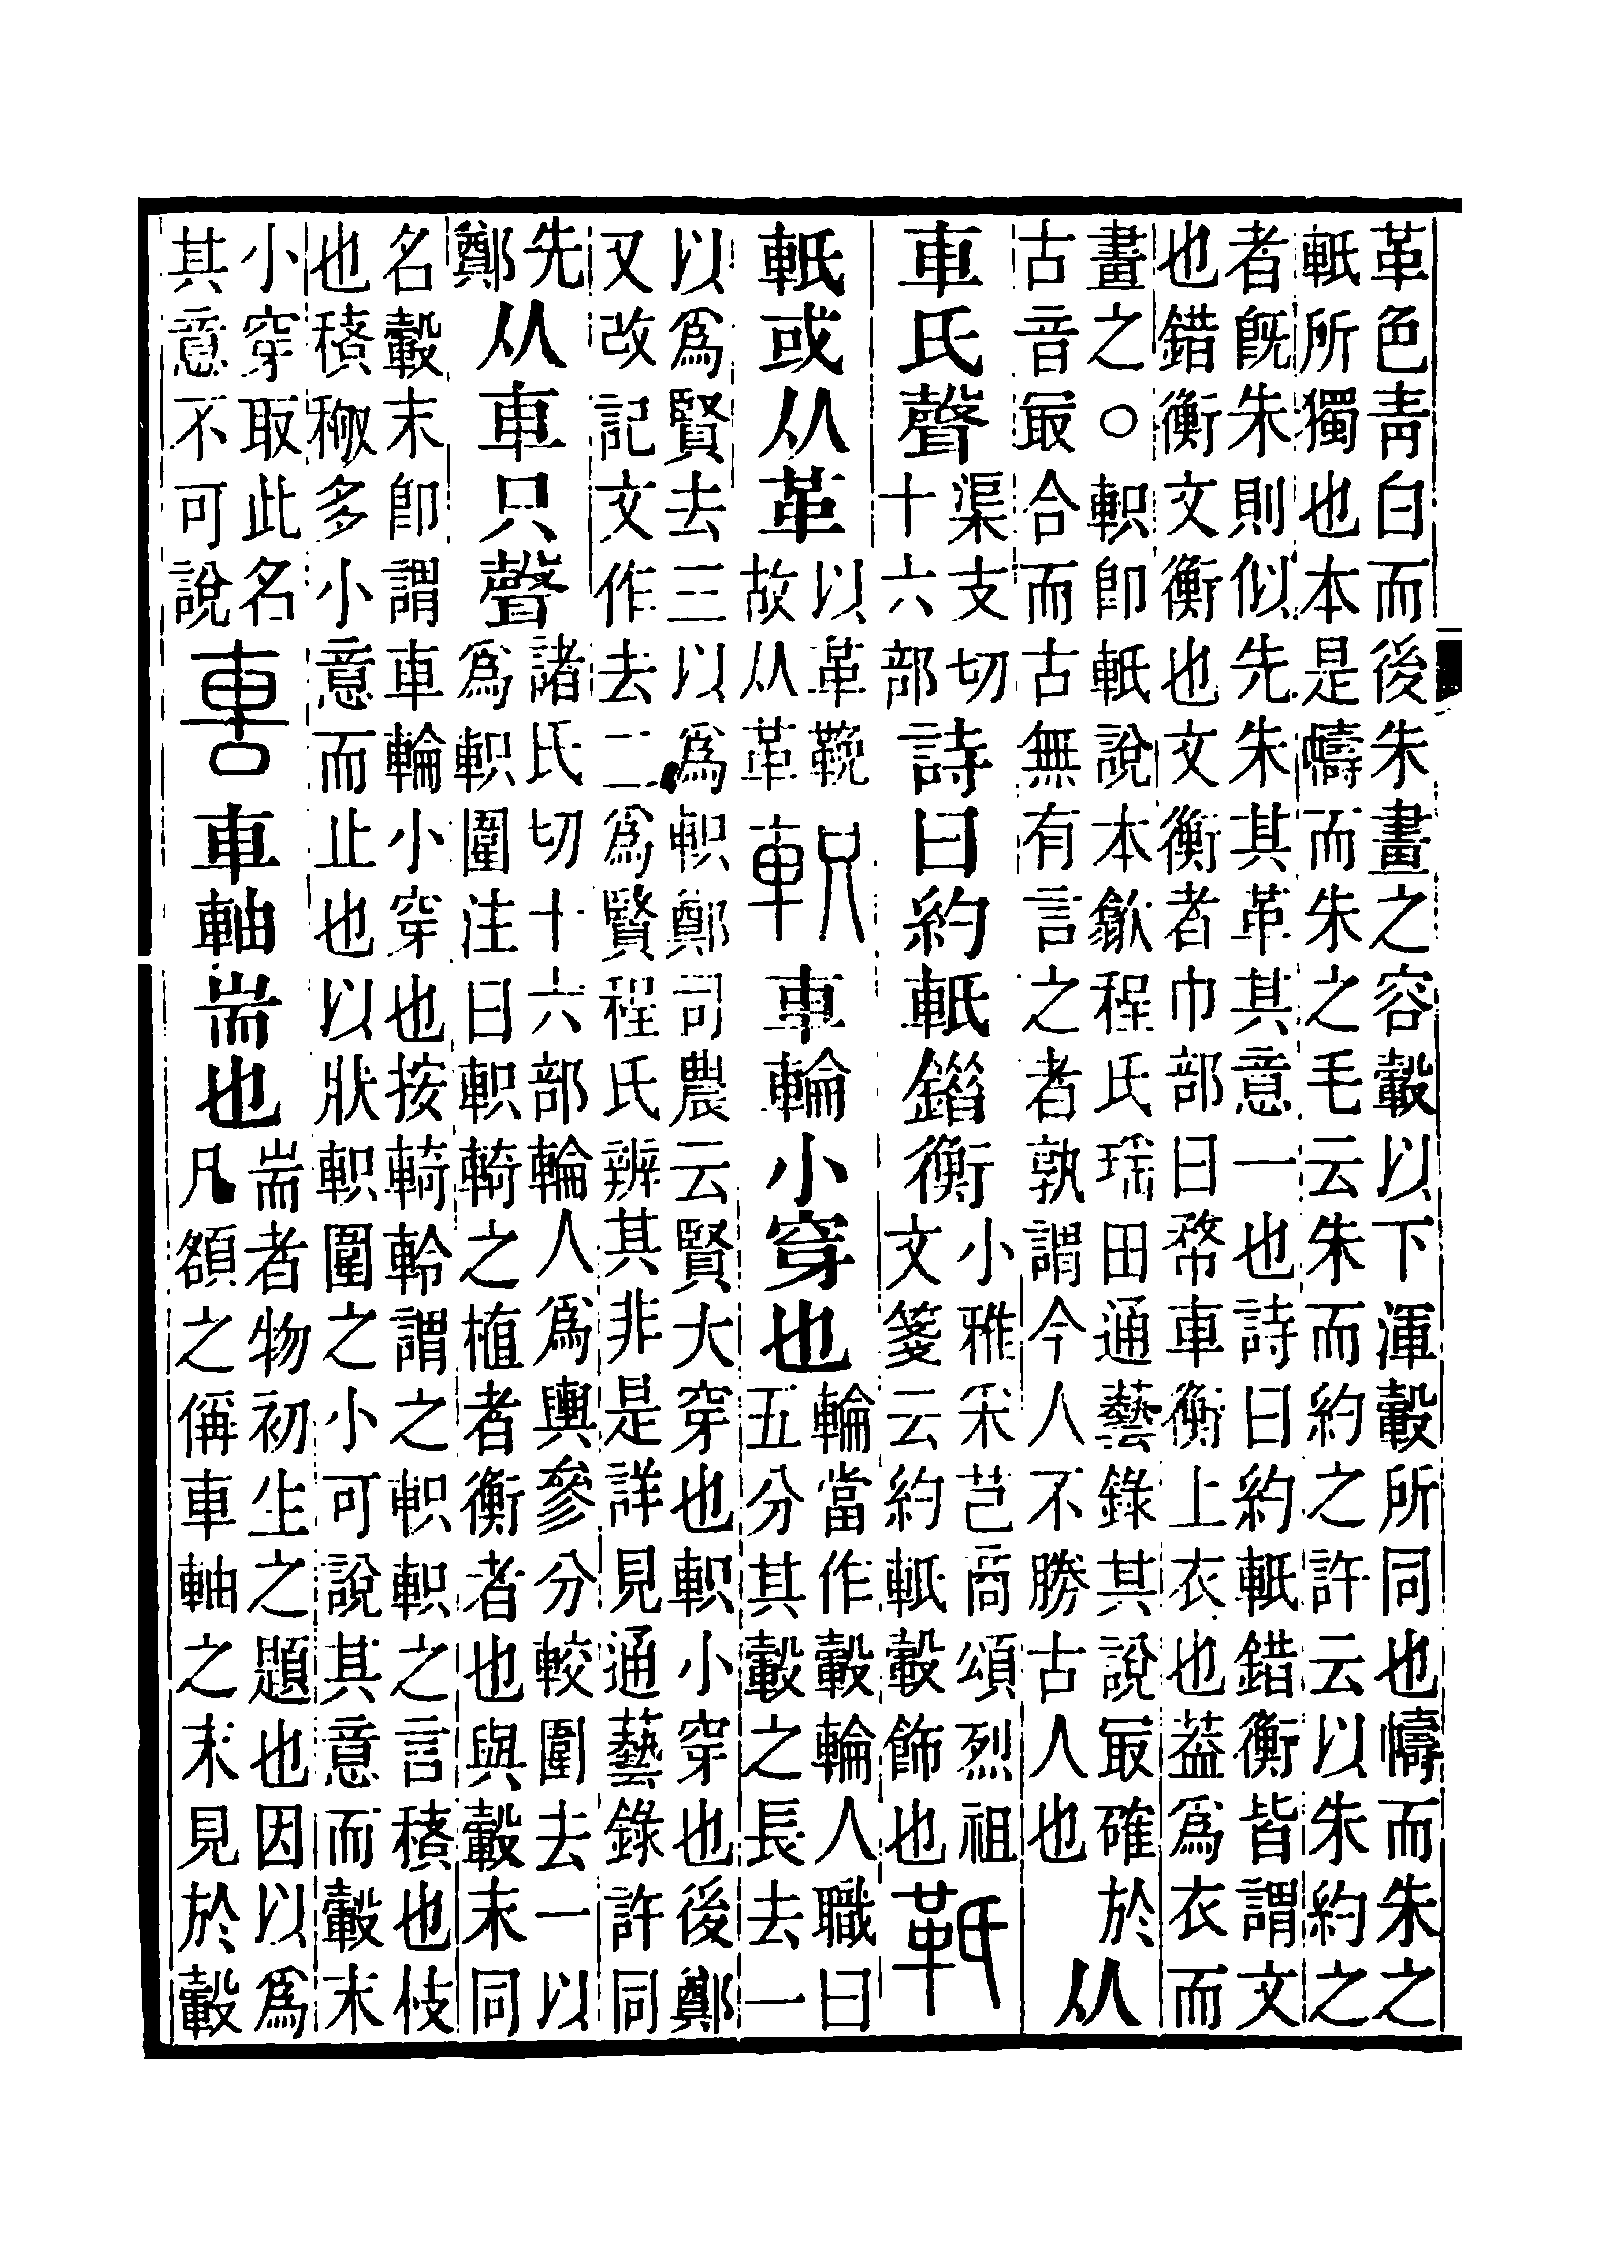 革色青白而後朱畫之容轂以下渾轂所同也幬而朱之
軝所獨也本是幬而朱之毛云朱而約之許云以朱約之
者旣朱則似先朱其革其意一也詩曰約軝錯衡皆謂文
也錯衡文衡也文衡者巾部曰㡔車衡上衣也葢爲衣而
畫之○軹卽軝說本歙程氏瑶田通藝錄其說冣確於
古音冣合而古無有言之者孰謂今人不勝古人也
从
車氏聲
渠支切
十六部
詩曰約軝䥘衡
小雅采芑商頌烈祖
文箋云約軝轂飾也
𩉬
軝或从革
以革鞔
故从革
軹
車輪小穿也
輪當作轂輪人職曰
五分其轂之長去一
以爲賢去三以爲軹鄭司農云賢大穿也軹小穿也後鄭
又改記文作去二爲賢程氏辨其非是詳見通藝錄許同
先
鄭
从車只聲
諸氏切十六部輪人爲輿參分較圍去一以
爲軹圍注曰軹輢之植者衡者也與轂末同
名轂末卽謂車輪小穿也按輢軨謂之軹軹之言䅩也枝
也䅩𥠻多小意而止也以狀軹圍之小可說其意而轂末
小穿取此名
其意不可說
軎
車軸耑也
耑者物初生之題也因以爲
凡頟之偁車軸之末見於轂